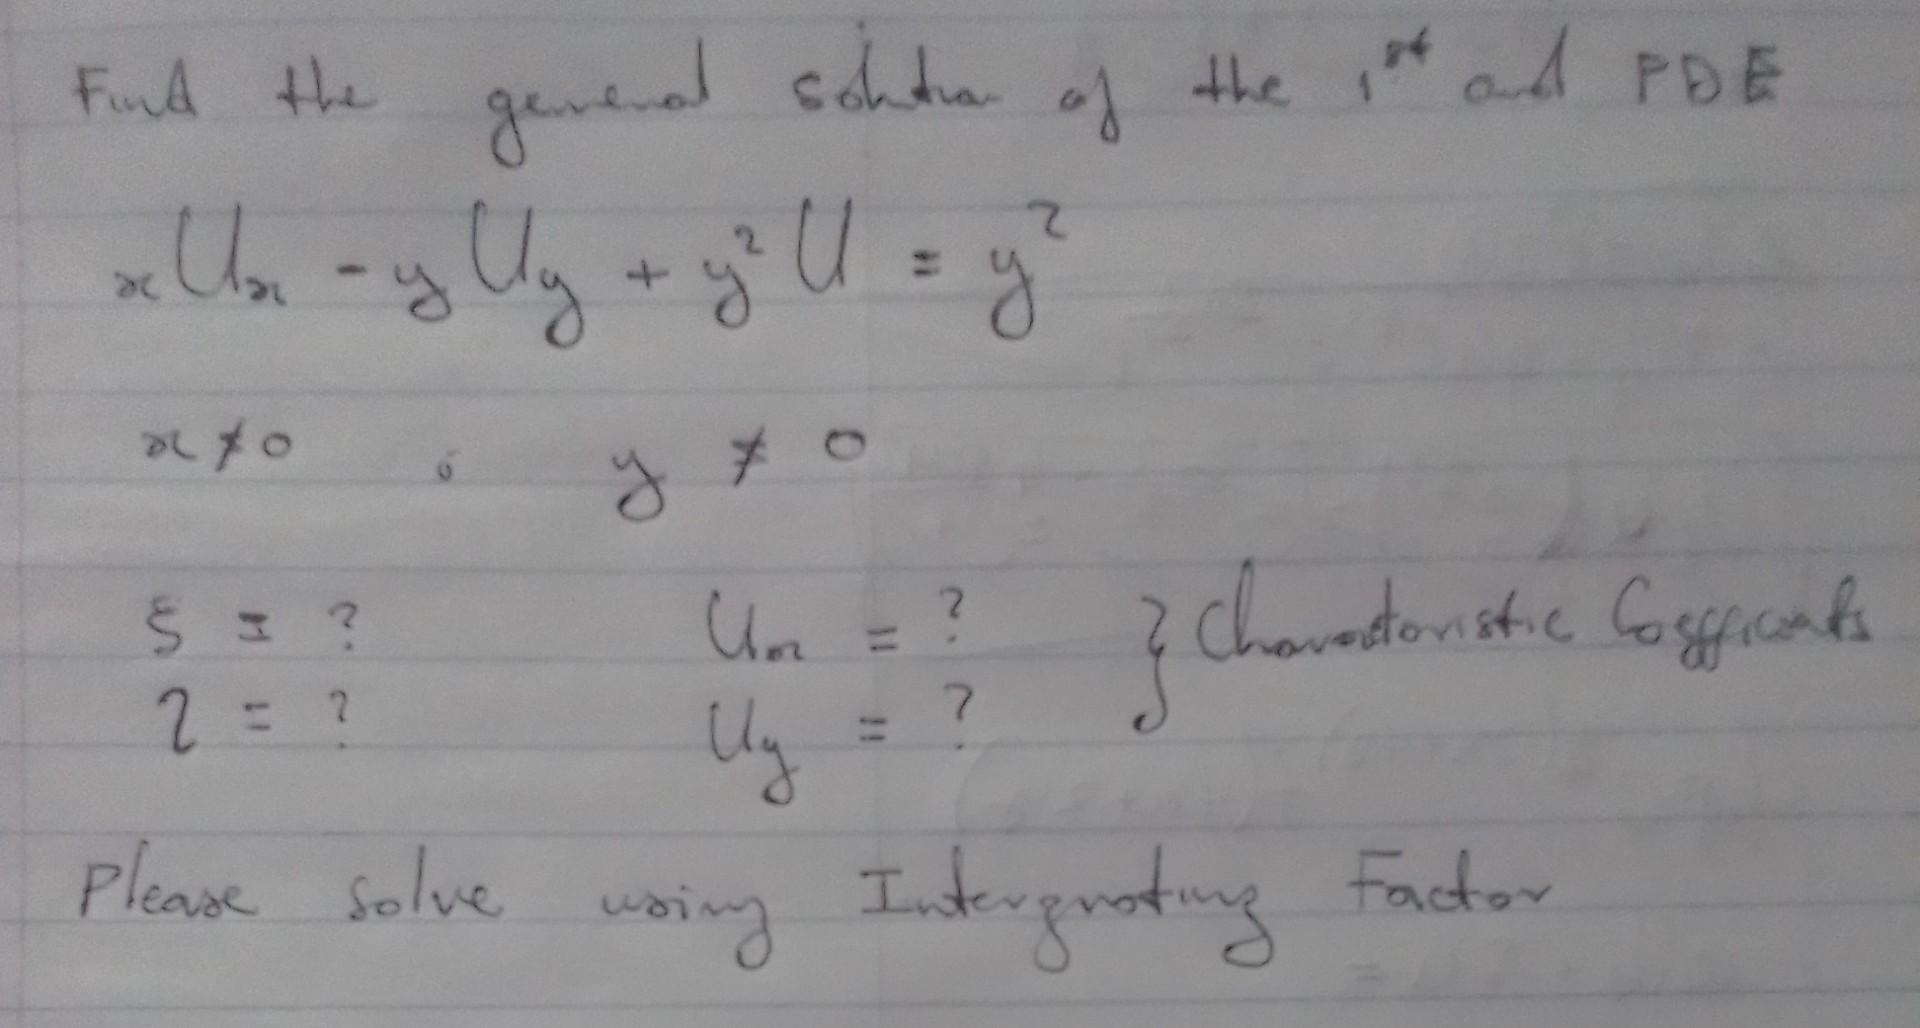 Find the general solution of the 1st ord PDE
xUx - yUy + y²U = y²
x ≠ 0 , y ≠ 0
ξ = ? Ux = ? } Characteristic Coefficients
η = ? Uy = ?
Please solve using Intergrating Factor